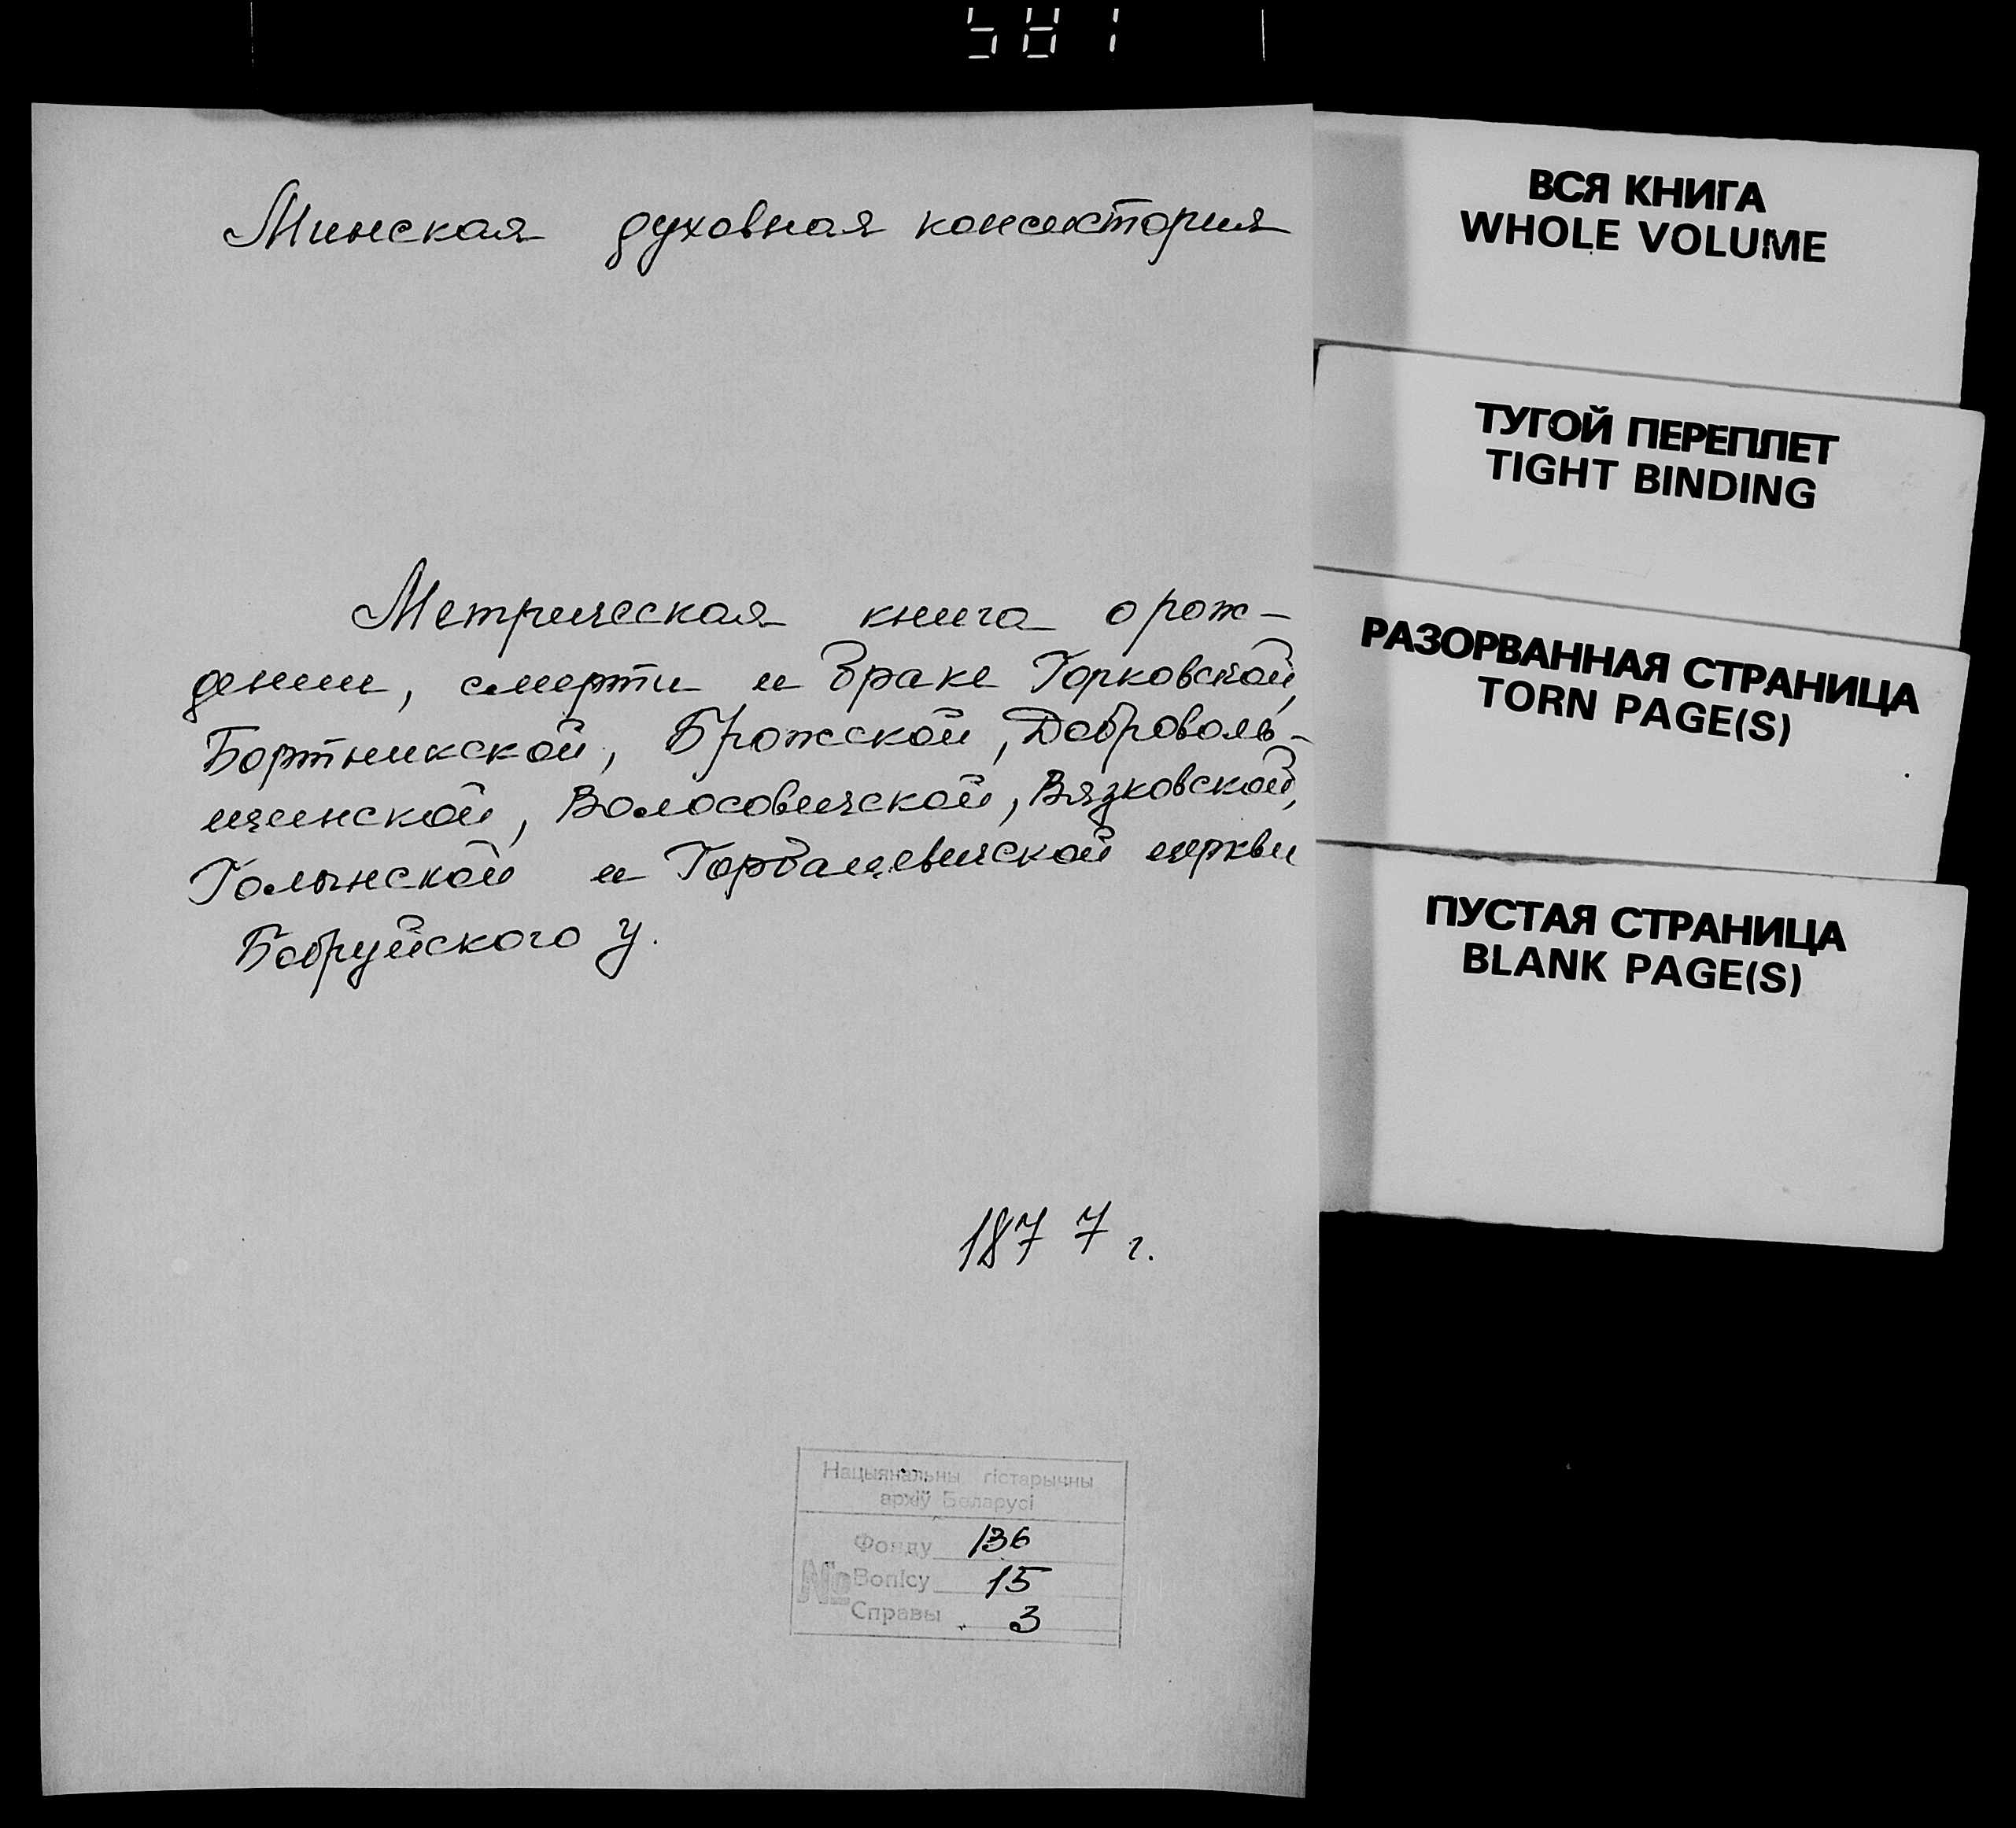 581
Минская духовная консистория
Метрическая книга о рож-
дении, смерти и браке Горковской,
Бортникской, Брожской, Доброволь-
щинской, Волосовичской, Вязковской,
Голынской и Горбацевичской церкви
Бобруйского у.
1877 г.
Нацыянальны гістарычны
архіў Беларусі
Фонду 136
№ Вопісу 15
Справы 3
ВСЯ КНИГА
WHOLE VOLUME
ТУГОЙ ПЕРЕПЛЕТ
TIGHT BINDING
РАЗОРВАННАЯ СТРАНИЦА
TORN PAGE(S)
ПУСТАЯ СТРАНИЦА
BLANK PAGE(S)